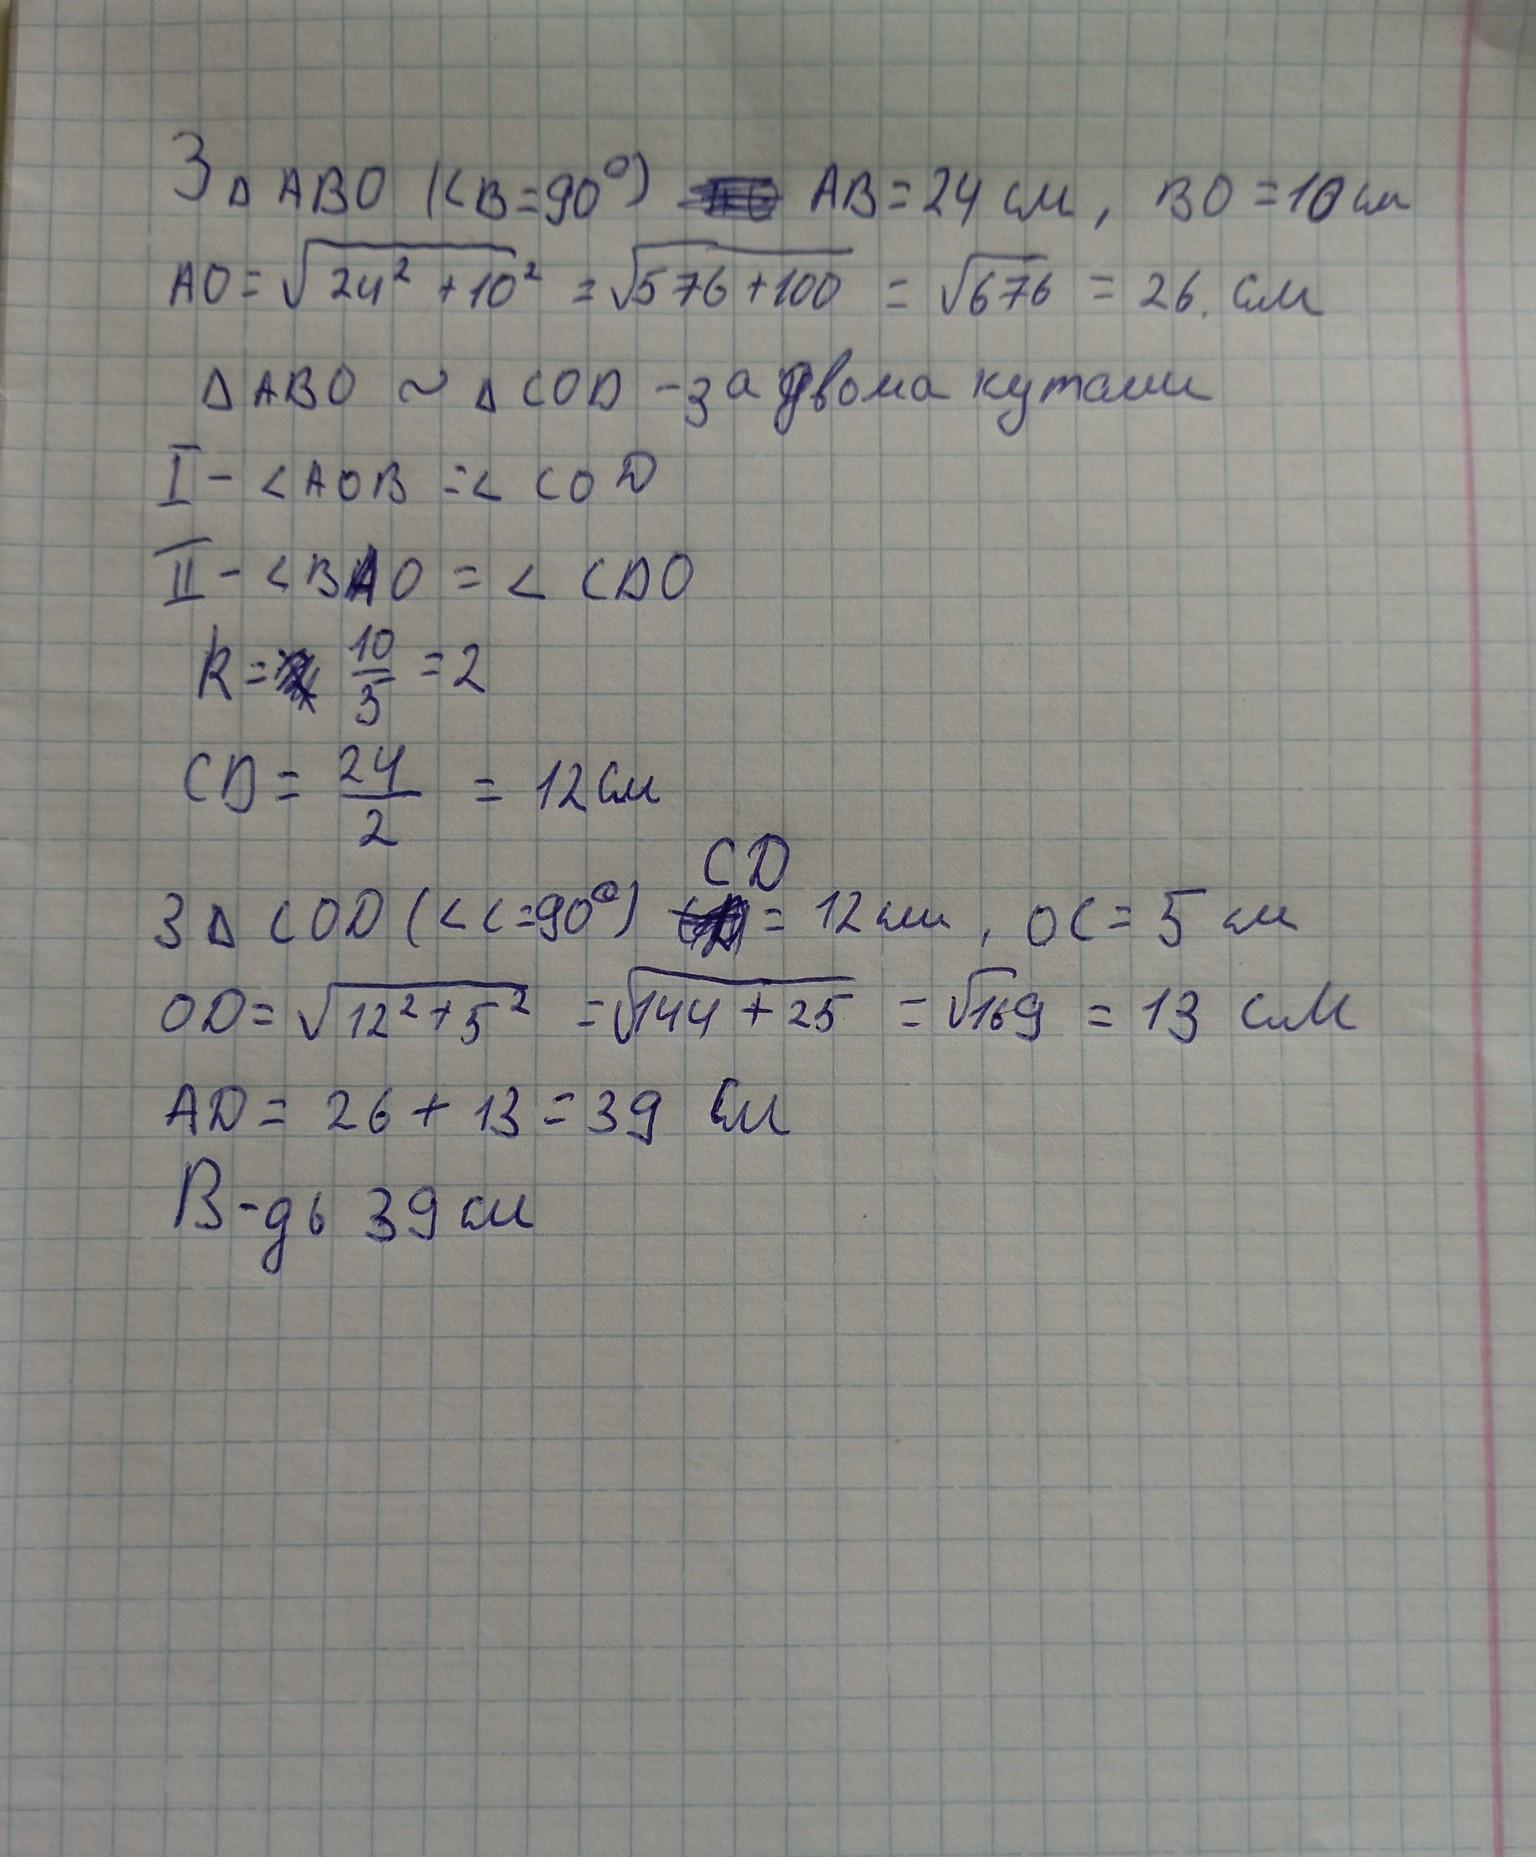 З △ ABO (<B=90°) AB=24 см, BO=10 см
AO=√24²+10² =√576+100 = √676 = 26. см
△ ABO ~ △ COD -за двома кутами
I - <AOB =< COD
II - <BAO = < CDO
k= 10/5 =2
CD= 24/2 = 12 см
CD
З △ COD (<C=90°) = 12 см, OC= 5 см
OD= √12²+5² =√144+25 = √169 = 13 см
AD= 26+13=39 см
В-дь 39 см